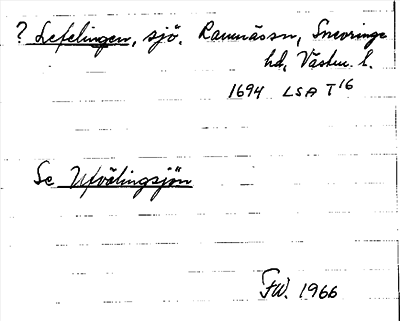 ? Lefelingen, sjö. Ramnässn, Snevringe
hd, Västm. l.
1694 LSA T 16
Se Ufvälingsjön
FW. 1966